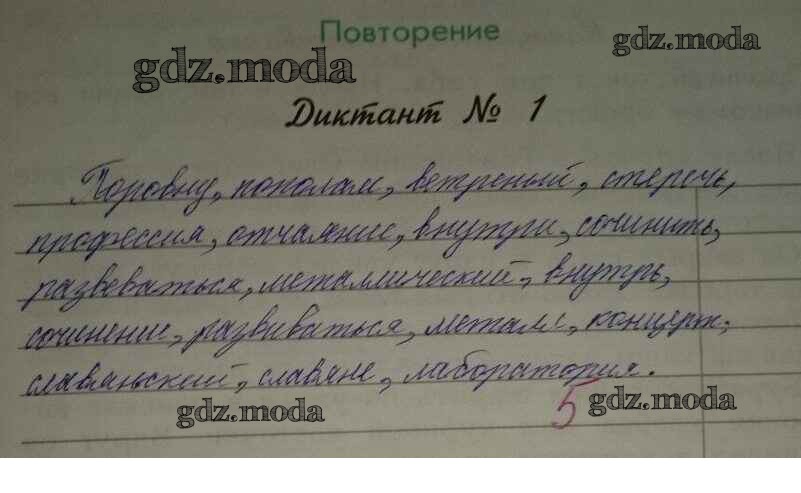 Повторение
gdz.moda
gdz.moda
Диктант № 1
Поровну, пополам, ветреный, стеречь,
профессия, отчаяние, внутри, сочинить,
развеваться, металлический, внутрь,
сочинение, развиваться, металл, концерт,
славянский, славяне, лаборатория.
5
gdz.moda
gdz.moda